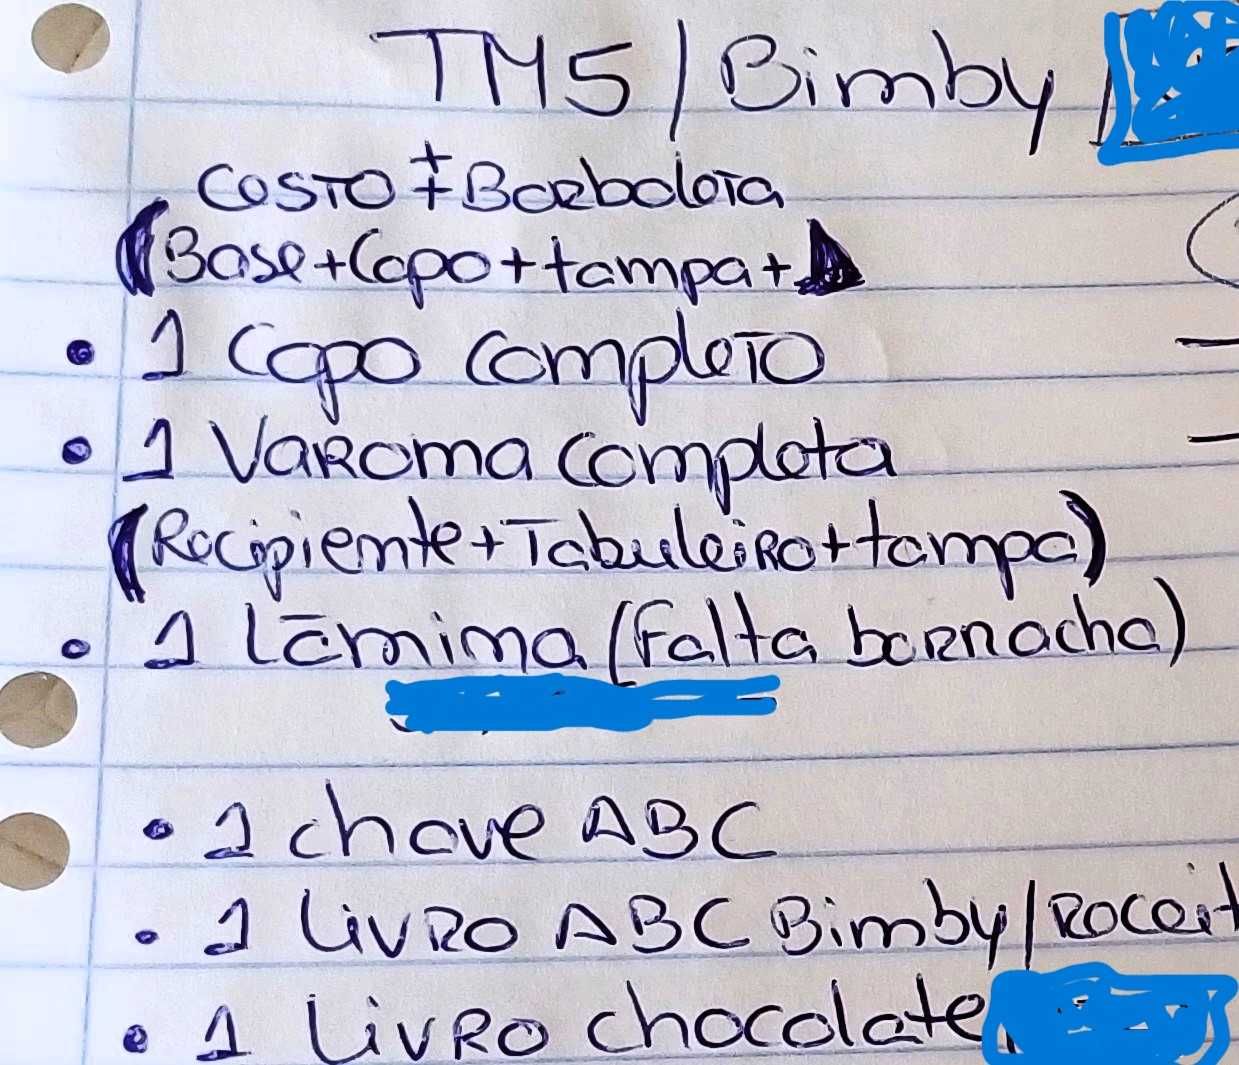 TM5 / Bimby /
Cesto ++ Borboleta
(Base+Copo+tampa+
• 1 Copo Completo
• 1 Varoma Completa
(Recipiente+Tabuleiro+tampa)
• 1 Lâmina (Falta borracha)
• 1 chave ABC
• 1 Livro ABC Bimby/Receit
• 1 Livro chocolate